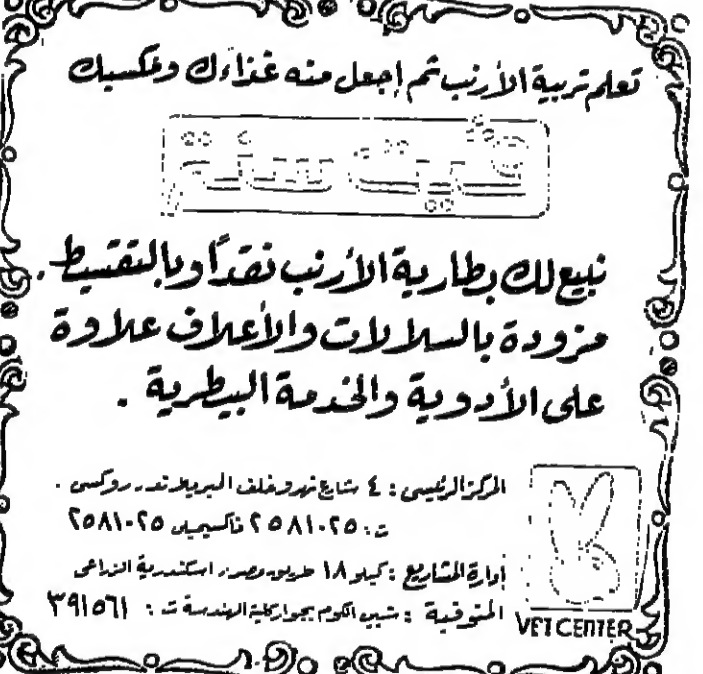 تعلم تربية الأرنب ثم إجعل منه غذاءك ومكسبك
ڤيت سنتر
نبيع لك بطارية الأرنب نقداً وبالتقسيط .
مزودة بالسلالات والأعلاف علاوة
على الأدوية والخدمة البيطرية .
المركز الرئيسى : ٤ شارع نهرو خلف الميريلاند . روكسى .
ت : ٢٥٨١٠٢٥ فاكسيميلى ٢٥٨١٠٢٥
إدارة المشاريع : كيلو ١٨ طريق مصر . اسكندرية الزراعى
المنوفية : شبين الكوم بجوار كلية الهندسة ت : ٣٩١٥٦١
VET CENTER